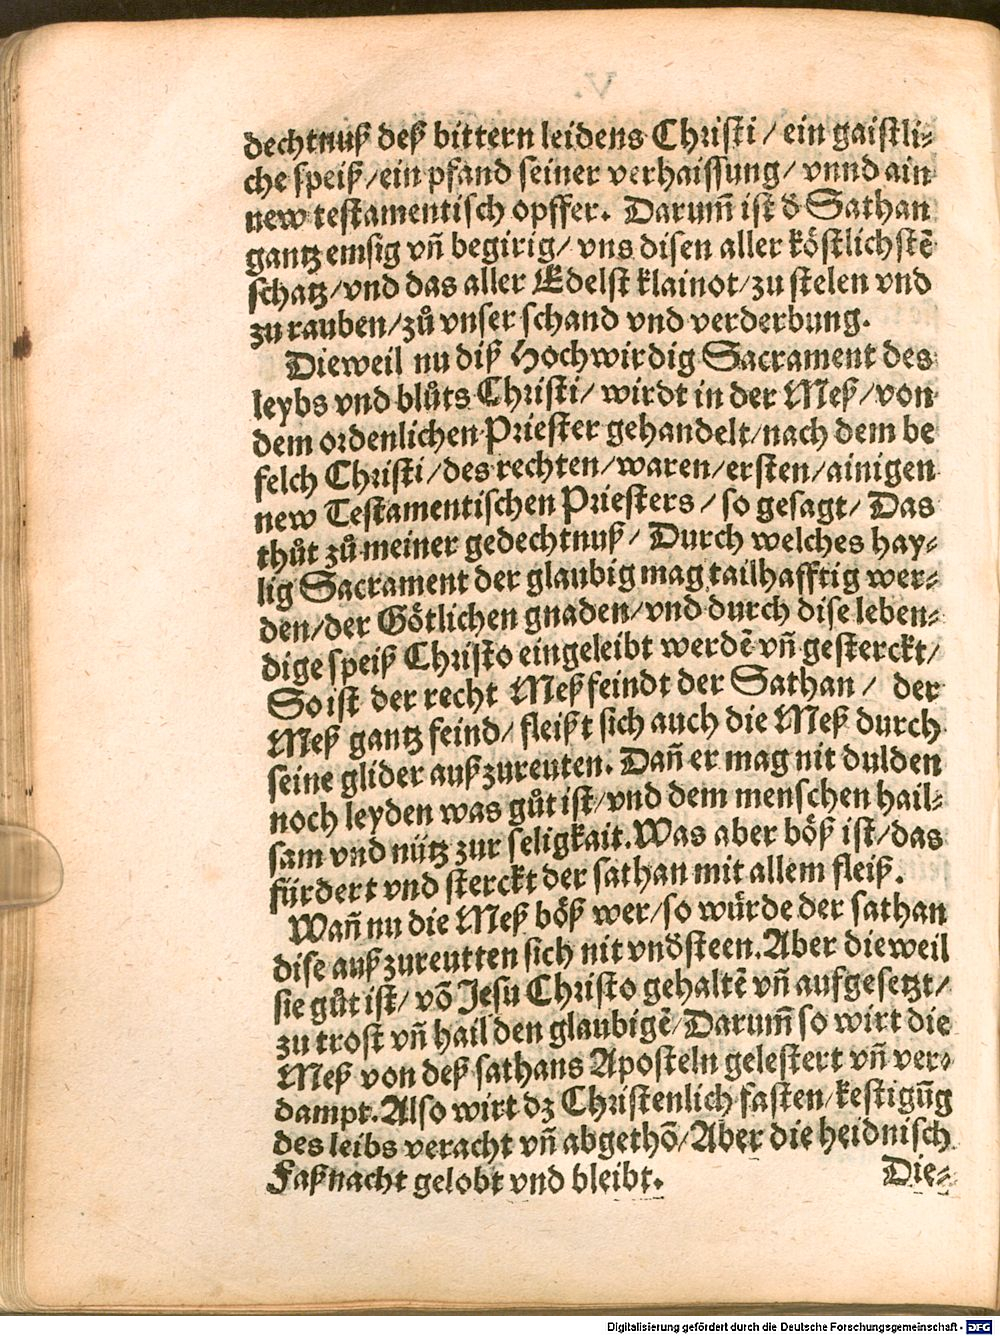 dechtnuß deß bittern leidens Christi / ein gaistli⸗
che speiß / ein pfand seiner verhaissung / vnnd ain
new testamentisch opffer. Darum̃ ist d̕ Sathan
gantz emsig vñ begirig / vns disen aller köstlichstẽ
schatz / vnd das aller Edelst klainot / zu stelen vnd
zu rauben / zů vnser schand vnd verderbung.
Dieweil nu diß Hochwirdig Sacrament des
leybs vnd blůts Christi / wirdt in der Meß / von
dem ordenlichen Priester gehandelt / nach dem be
felch Christi / des rechten / waren / ersten / ainigen
new Testamentischen Priesters / so gesagt / Das
thůt zů meiner gedechtnuß / Durch welches hay⸗
lig Sacrament der glaubig mag tailhafftig wer⸗
den / der Götlichen gnaden / vnd durch dise leben⸗
dige speiß Christo eingeleibt werdẽ vñ gesterckt /
So ist der recht Meß feindt der Sathan / der
Meß gantz feind / fleißt sich auch die Meß durch
seine glider auß zureuten. Dañ er mag nit dulden
noch leyden was gůt ist / vnd dem menschen hail⸗
sam vnd nütz zur seligkait. Was aber böß ist / das
fürdert vnd sterckt der sathan mit allem fleiß.
Wañ nu die Meß böß wer / so würde der sathan
dise auß zureutten sich nit vnd̕steen. Aber dieweil
sie gůt ist / võ Jesu Christo gehaltẽ vñ aufgesetzt /
zu trost vñ hail den glaubigẽ / Darum̃ so wirt die
Meß von deß sathans Aposteln gelestert vñ ver⸗
dampt. Also wirt dz Christenlich fasten / kestigũg
des leibs veracht vñ abgethõ / Aber die heidnisch
Faßnacht gelobt vnd bleibt.
Die⸗
Digitalisierung gefördert durch die Deutsche Forschungsgemeinschaft - DFG